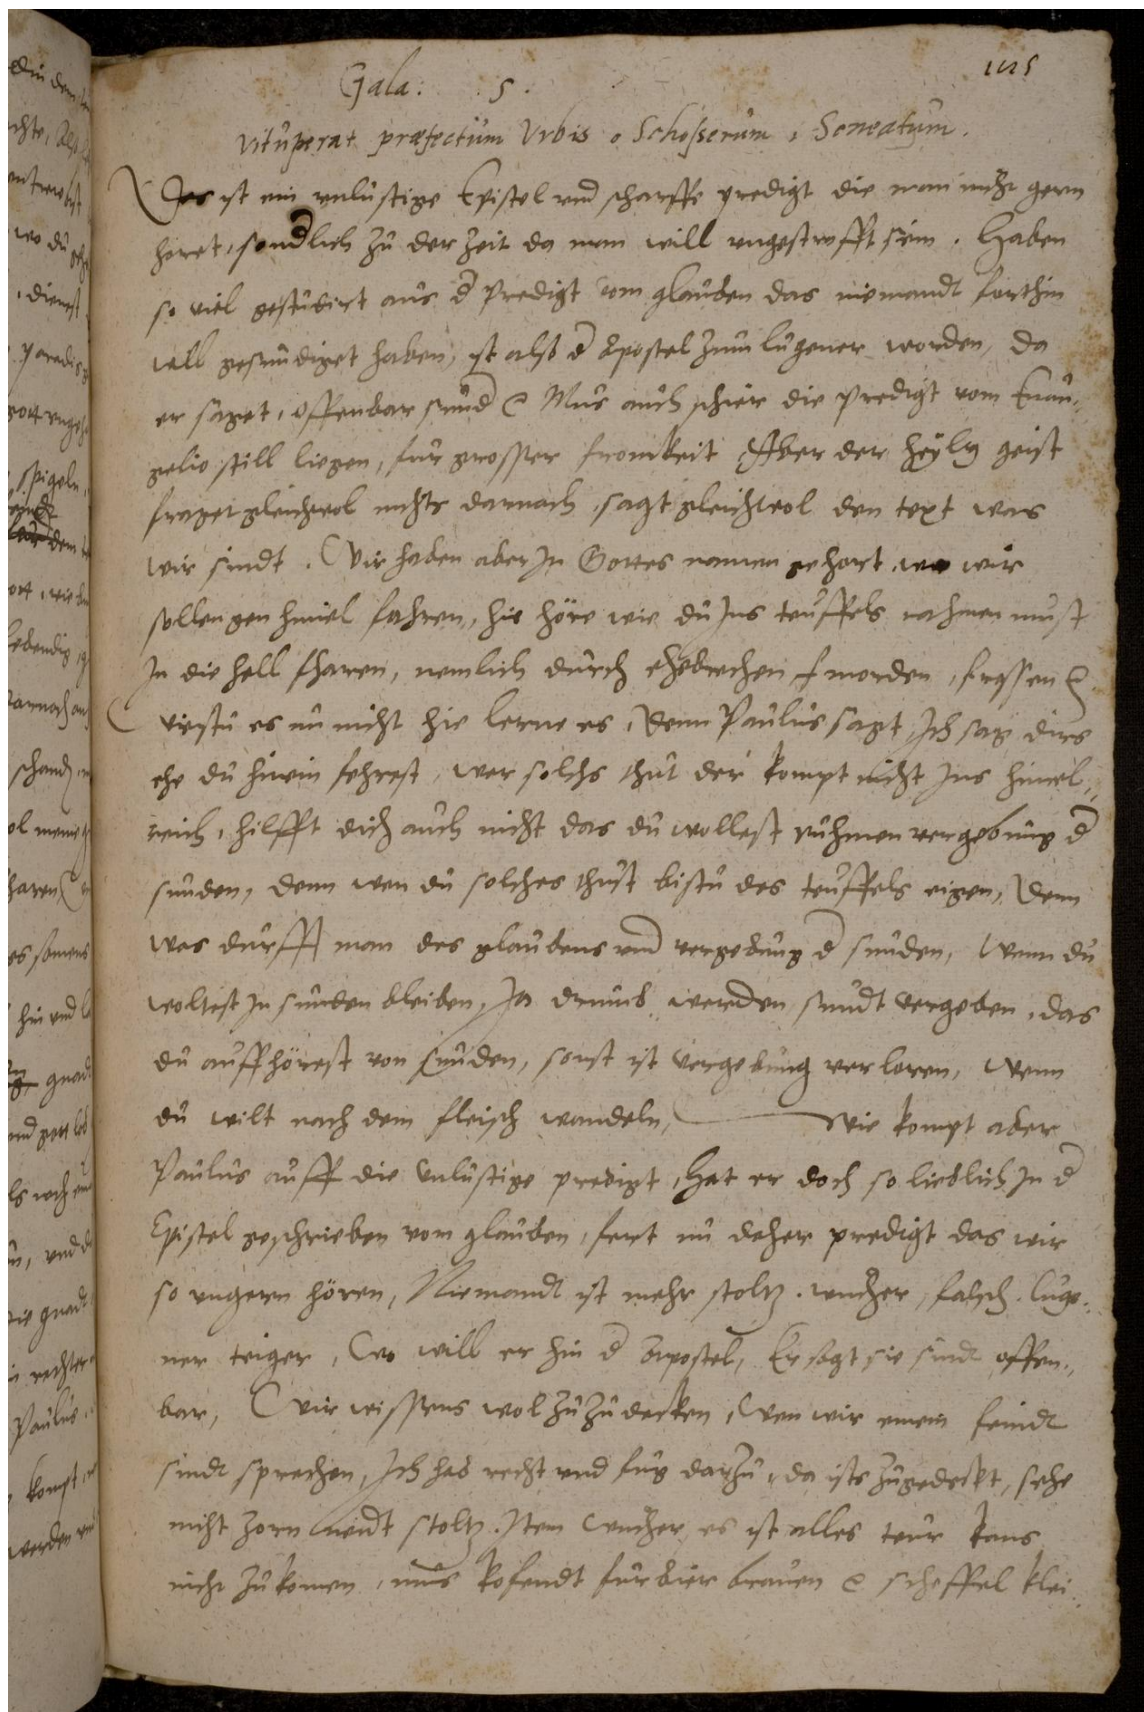 1125
Gala: 5.
Vituperat præfectum Vrbis . Schosserum , Senatum.
Das ist ein vnlustige Epistel vnd scharffe predigt die man nicht gern
horet, sondlich zu der zeit da man will vngestrafft sein. Haben
so viel gestudirt aus d Predigt vom glauben das niemandt forthin
will gesundiget haben, ist also d Apostel zum lugener worden, da
er saget, offenbar sund e Mus auch schier die predigt vom Euan-
gelio still liegen, fur grosser fromkeit Aber der heylig geist
fraget gleichwol nichts darnach, sagt gleichwol den text was
wir sindt. Wir haben aber In Gottes namen gehort wie wir
sollen gen himel fahren, hie höre wie du Ins teuffels nahmen must
In die hell fharen, nemlich durch ehebrechen morden, fressen e
wiestu es nu nicht hie lerne es, Denn Paulus sagt, Ich sag dirs
ehe du hinein fehrest, wer solchs thut der kompt nicht Ins himel-
reich, hilfft dich auch nicht das du wollest ruhmen vergebung d
sunden, denn wen du solches thust bistu des teuffels eigen, Denn
was durfft man des glaubens vnd vergebung d sunden, Wenn du
woltest In sunden bleiben, Ja drumb werden sundt vergeben, das
du auffhörest von sunden, sonst ist vergebung verloren, Wenn
du wilt nach dem fleisch wandeln, Wie kompt aber
Paulus auff die vnlustige predigt, Hat er doch so lieblich In d
Epistel geschrieben vom glauben, fert nu daher predigt das wir
so vngern hören, Niemandt ist mehr stoltz. wucher, falsch. luge-
ner teiger, Wo will er hin d Apostel, Er sagt sie sindt offen-
bar, Wir wissens wol zuzudecken, Wen wir einem feindt
sindt sprechen, Ich hab recht vnd fug darzu, da ists zugedeckt, sehe
nicht zorn neidt stoltz. Item Wucher, es ist alles teur kans
nicht zukomen, mus kofendt fur bier brauen e scheffel klei-